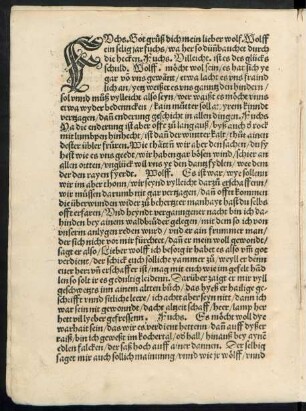 FUchs. Got grüß dich mein lieber wolf. Wolff
ein selig jar fuchs/ wa her so dunb aucher durch
die hecken. Fuchs. Villeicht ist es des glücks
schuld. Wolff. möcht wol sein/ es hat sich ye
gar vō vns gewant/ etwa lacht es vns fraind
lich an/ yetz weißt es vns gantz den hindern/
sol vnnd můß vylleicht also seyn/ wer waißt es möcht vnns
etwa wyder bedencken/ kain můtter solle yrem kinde
verzagen/ dañ enderung geschicht in allen dingen. Fuchs
Wa die enderung ist aber offt zů langauß/ byß
mit lumhpen hinhecht/ ist dañ der winter kalt/ thůt ainer
dester übler früren. Wie thätt wir aber den sachen/ du sy
hest wie es vns geede/ wir haben gar bösen wind/ schier an
allen orten/ vnglück wil vns
der den rayen fyerdt. Wolff. Es ist war/ wye sollenn
wir im aber thonn/ wir seynd vylleicht dar zů erschaffenn/
wir müssen darumb nit gar verzagen/ dañ offtt kommen
die überwunden wider zů behertzter manhayt hast du selb
offt erfaren/ Vnd heynd vergangner nacht bin ich da
hinden bey ainem waldbrůder gelegen/ mit dem so ich von
vnserm anlygen reden ward/ vnd er ain frummer man/
der sich nicht vor mir förchtet/ dañ er mein woll gewonde/
sagt er also/ Lieber wolff ich besorg ir habet es also vñ got
verdienet/ der schickt euch solliche yammer zů/ weyll er denn
euer herr vñ erschaffer ist/ mag mit euch wie im gefelt hād
len so solt ir es gedultig leiden. Darüber zaiget er mir vyll
geschwetzs inn ainem alten bůch/ das hyeß er hailige ge
schrifft vnnd sitliche leere/ ich acht aber seyn nit/ dann ich
war sein nit gewonndt/ dacht alzeit schaff/ heer/ lamp her
hett vil lyeber gefressenn. Fuchs. Es möcht woll dye
warhait sein/ das wir es verdienet hettenn/ dañ auff dyser
raiß/ bin ich geweßt im Kochertal/ ob hall/ hinauß bey ayne
edlen falcken/ der saß hoch auff ainer dannen. Der selbig
saget mir auch sollich mainung/ vnnd wie je wölff/ vnnd